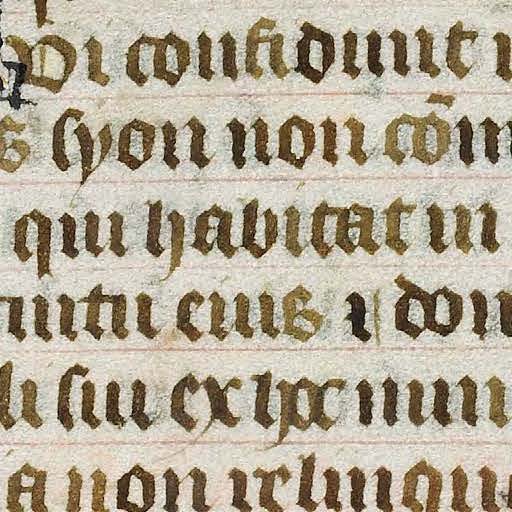 Qi confidunt i
s syon non cōm
qui habitat in
cuitu eius ⁊ dom
li sui ex hoc nun
a non relinqu